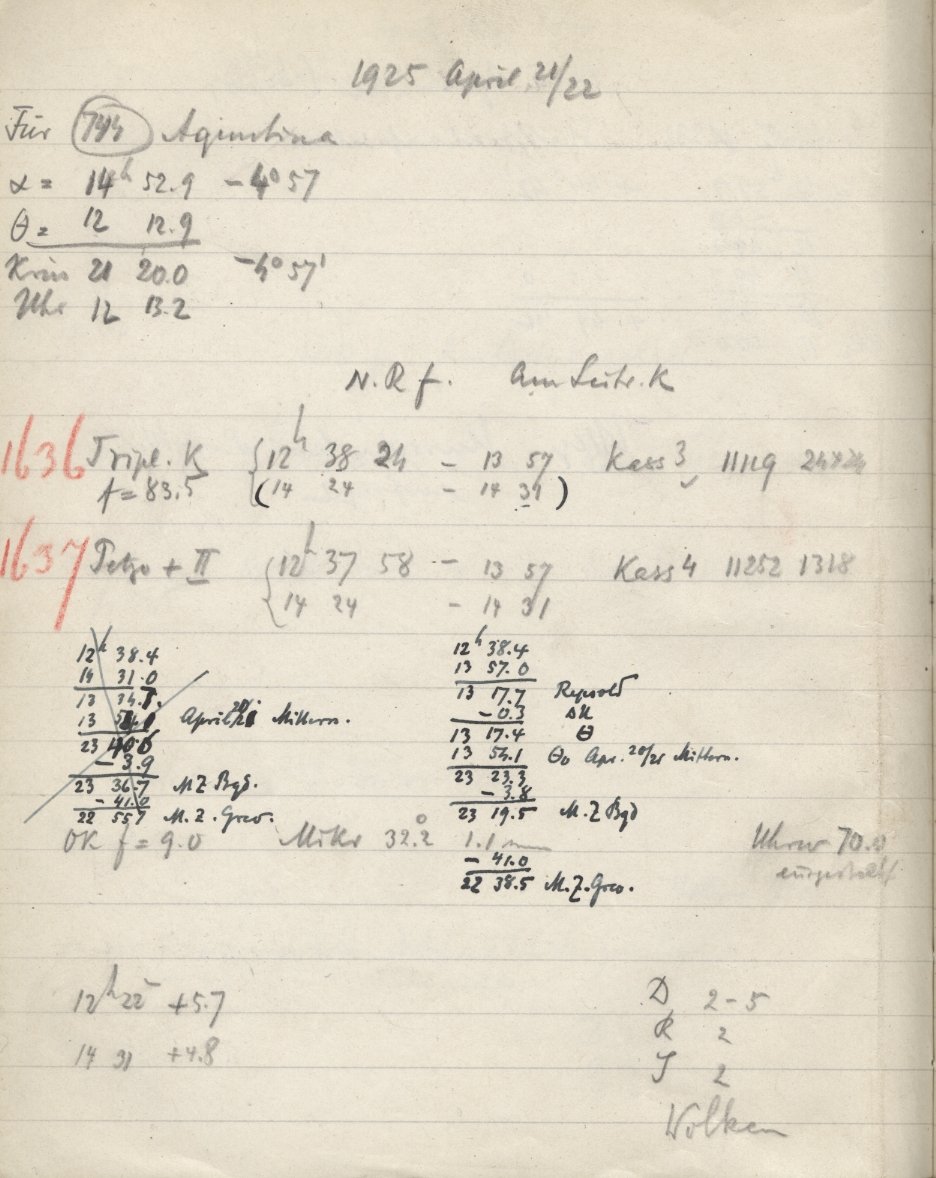 1925 April 21/22
Für 744 Aquitina
α = 14h 52.9 -4° 57
θ = 12 12.9
Kreis 21 20.0 -4° 57'
Uhr 12 13.2
N. R f.
1636 Tripl. K 12h 38 24 - 13 57 Kass 3 11119
f = 83.5 (14 24 - 14 31)
1637 + II 12h 37 58 - 13 57 Kass 4 11252 1318
14 24 - 14 31
12h 38.4
14 31.0
13
13 April Mittern.
23
- 3.9
23 36.7 M Z Bgd.
- 41.0
22 55.7 M. Z. Grw.
12h 38.4
13 57.0
13 17.7 Repsold
- 0.3 ΔU
13 17.4 θ
13 54.1 θ0 Apr. 20/21 Mittern.
23 23.3
- 3.8
23 19.5 M. Z Bgd
OK f = 9.0 Mikr 32.2 1.1 mm Uhrw 70.0
- 41.0
22 38.5 M. Z. Grw.
12h 22 +5.7
14 31 +4.8
D 2-5
R 2
J 2
Wolken